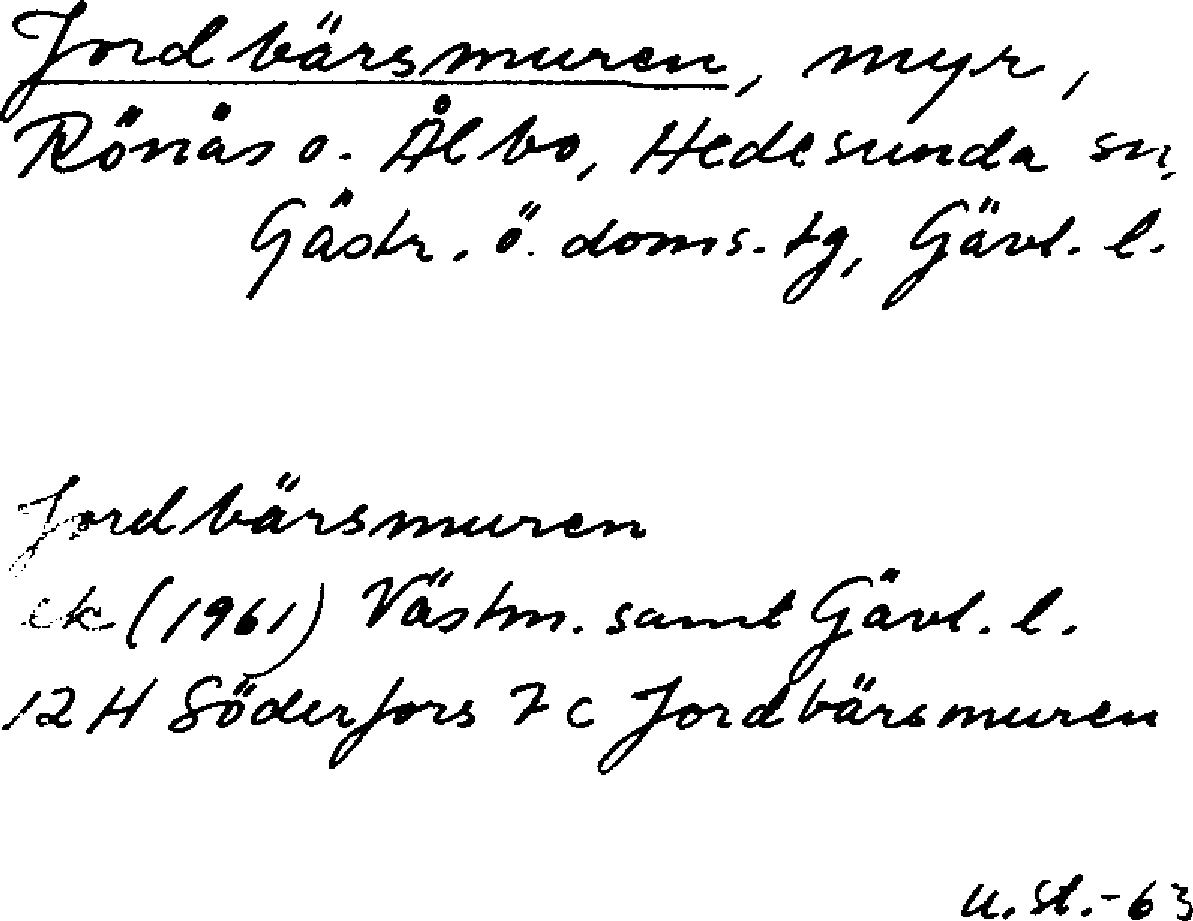 Jordbärsmuren, myr,
Rönäs o. Ålbo, Hedesunda sn,
Gästr. ö. doms. tg, Gävl. l.
Jordbärsmuren
ek (1961) Västm. samt Gävl. l.
12 H Söderfors 7 c Jordbärsmuren
u. st. -63